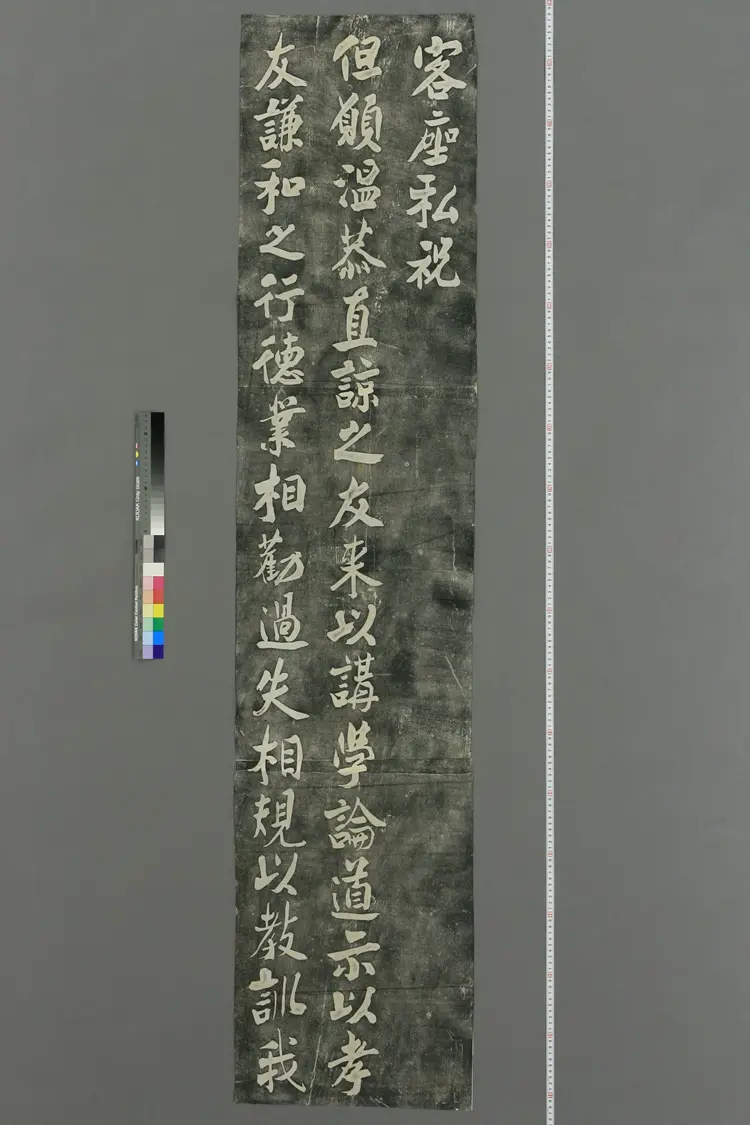 客座私祝
但願温恭直諒之友来以講学論道示以孝
友謙和之行徳業相勸過失相規以教訓我